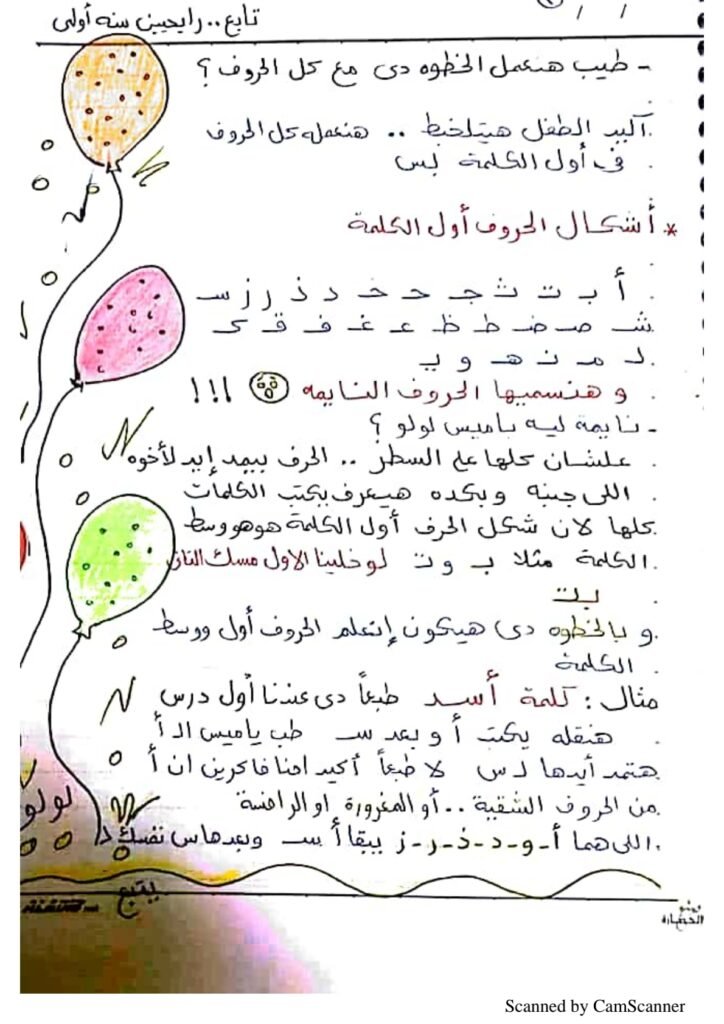 تابع.. رايحين سنه أولى
- طيب هنعمل الخطوه دى مع كل الحروف ؟
. أكيد الطفل هيتلخبط .. هنعمله كل الحروف
. فى أول الكلمة بس
* أشكال الحروف أول الكلمة
. أ بـ تـ ثـ جـ حـ خـ د ذ ر ز سـ
شـ صـ ضـ طـ ظـ عـ غـ فـ قـ كـ
لـ مـ نـ هـ و يـ
. و هنسميها الحروف النايمه !!!
- نايمة ليه ياميس لولو ؟
. علشان كلها على السطر .. الحرف بيمد إيد لأخوه
. اللى جنبه وبكده هيعرف يكتب الكلمات
كلها لان شكل الحرف أول الكلمة هو هو وسط
. الكلمة مثلا بـ و ت لو خلينا الاول مسك التانى
. بت
. و بالخطوه دى هيكون إتعلم الحروف أول ووسط
الكلمة
مثال : كلمة أسد طبعاً دى عندنا أول درس
. هنقله يكتب أ و بعد سـ طب ياميس الـ أ
. هتمد أيدها لـ س لا طبعاً أكيد احنا فاكرين ان أ
. من الحروف الشقية .. أو المغرورة او الرافضة
. اللى هما أ - و - د - ذ - ر - ز يبقا أ سـ وبعدها س تمسك د
لولو
يتبع
Scanned by CamScanner